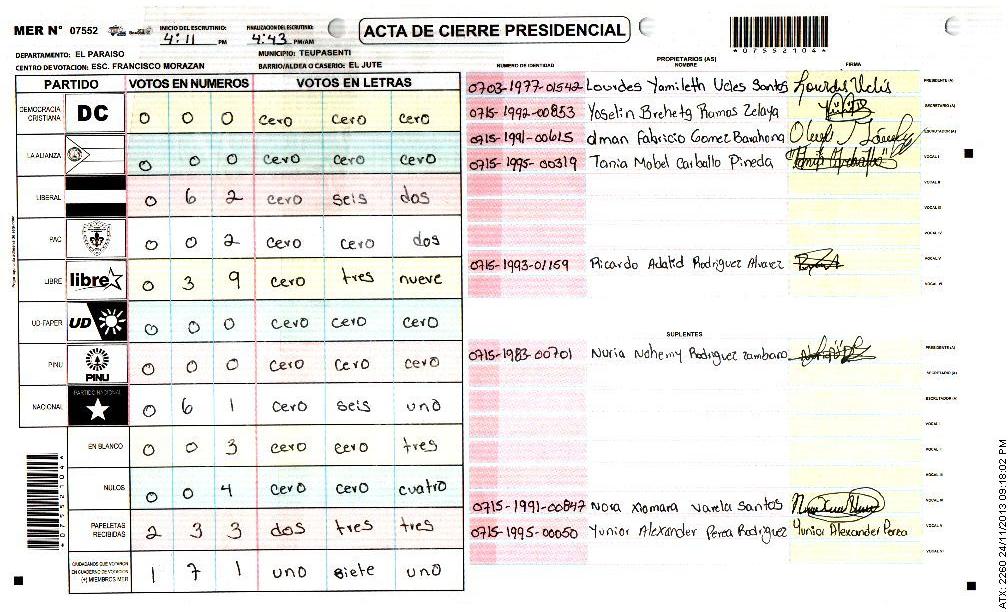 MER N° 07552
INICIO DEL ESCRUTINIO: 4:11 PM
FINALIZACION DEL ESCRUTINIO: 4:43 PM/AM
ACTA DE CIERRE PRESIDENCIAL
*07552104*
DEPARTAMENTO: EL PARAISO
MUNICIPIO: TEUPASENTI
CENTRO DE VOTACION: ESC. FRANCISCO MORAZAN
BARRIO/ALDEA O CASERIO: EL JUTE
PARTIDO VOTOS EN NUMEROS VOTOS EN LETRAS
DEMOCRACIA CRISTIANA DC 0 0 0 cero cero cero
LA ALIANZA 0 0 0 cero cero cero
LIBERAL 0 6 2 cero seis dos
PAC 0 0 2 cero cero dos
LIBRE libre 0 3 9 cero tres nueve
UD-FAPER UD 0 0 0 cero cero cero
PINU PINU 0 0 0 cero cero cero
NACIONAL PARTIDO NACIONAL 0 6 1 cero seis uno
EN BLANCO 0 0 3 cero cero tres
NULOS 0 0 4 cero cero cuatro
PAPELETAS RECIBIDAS 2 3 3 dos tres tres
CIUDADANOS QUE VOTARON EN CUADERNO DE VOTACION (+) MIEMBROS MER 1 7 1 uno siete uno
*07552104*
PROPIETARIOS (AS)
NUMERO DE IDENTIDAD NOMBRE FIRMA
0703-1977-01542 Lourdes Yamileth Ucles Santos Lourdes Uclés PRESIDENTE (A)
0715-1992-00853 Yoselin Brehety Ramos Zelaya SECRETARIO (A)
0715-1991-00615 dman Fabricio Gomez Barahona ESCRUTADOR (A)
0715-1995-00319 Tania Mabel Carballo Pineda VOCAL I
VOCAL II
VOCAL III
VOCAL IV
0715-1993-01159 Ricardo Adalid Rodriguez Alvarez VOCAL V
VOCAL VI
SUPLENTES
0715-1983-00701 Nuria Nohemy Rodriguez zambrano PRESIDENTE (A)
SECRETARIO (A)
ESCRUTADOR (A)
VOCAL I
VOCAL II
VOCAL III
0715-1991-00847 Nora Xiomara Varela Santos VOCAL IV
0715-1995-00050 Yunior Alexander Perea Rodriguez Yunior Alexander Perea VOCAL V
VOCAL VI
ATX: 2260 24/11/2013 09:18:02 PM